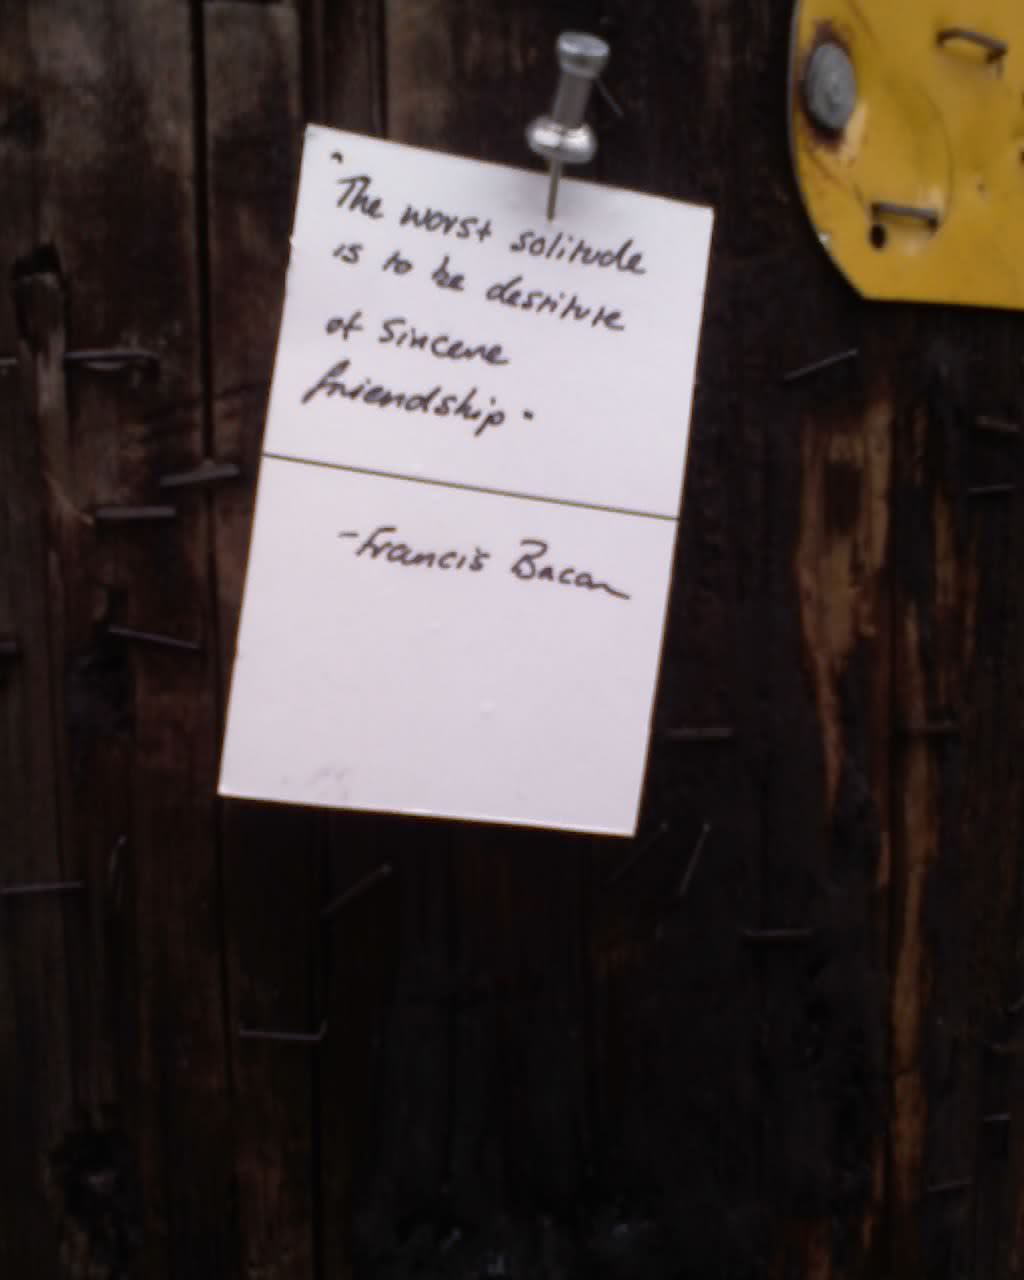 "The worst solitude
is to be destitute
of sincere
friendship"
-Francis Bacon